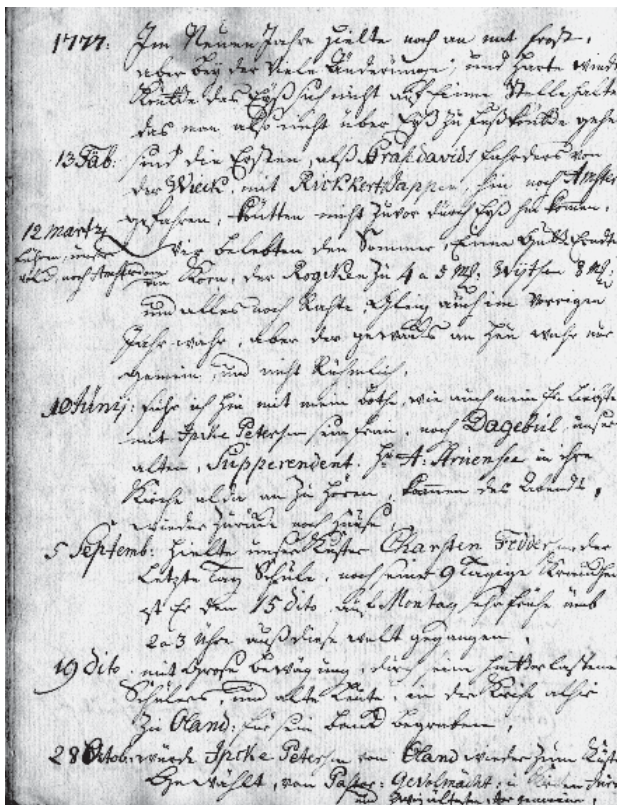 1777: Im Neuen Jahre hielte noch an mit frost,
aber beÿ der viele Änderunge, und harte windt
Künde das Eÿß sich nicht auf Einne Stelle halte
das man also nicht über Eÿß zu fuß künde gehe
13 Fäb: sind die Ersten, alß davids von
der Wieck, mit Rickkert Jappen, hin nach Amster
gefahren, künten nicht zuvor durch Eÿß hin komen,
12 Martz
führen unser
nach Amsterdam
Wir belebten den Sommer, Einne Erndte
an Korn, der Rogcken zu 4 a 5 Mk: 8 Mk:
und alles nach Rahte, gleig auch im Vorrigen
Jahr wahr, aber der gewachs an Heu wahr nur
gemein, und nicht Rühmlich,
10 Junÿ: fuhr ich hin mit mein bothe, wie auch mein Liebste
mit Ipcke Petersen sein frau, nach Dagebül, unser
alten, Supperendent. H: A: Struensee in ihre
Kirche alda an zu hören, kommen des Abends,
wieder zurück nach Hause,
5 Septemb: hielte unser Küster Charsten Fedder, der
Letzte Tag Schule, nach einer 9 tägige Kranckhei
ist Er den 15 dito, auf Montag, sehr frühe umb
2 a 3 Uhre auß diese welt gegangen,
19 dito, mit große bewägung, durch sein hinterlassene
Schülers, und alte Leute, in der Kirche alhir
zu Oland: für sein begraben,
28 Octob: wurde Ipcke Petersen von Oland wieder zum Küste
Gewählt, von Pastor: Gevolmächt:
und zweÿ ältesten der gemeine